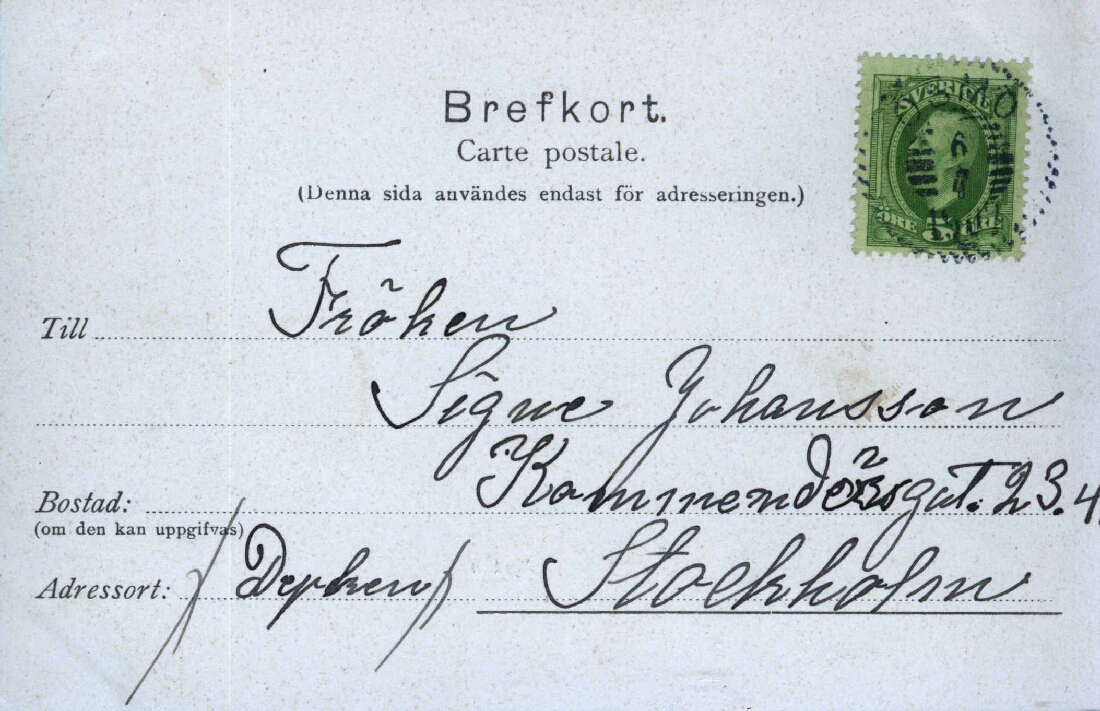 Brefkort.
Carte postale.
(Denna sida användes endast för adresseringen.)
SVERIGE
6
ÖRE 5 ÖRE
Till Fröken
Signe Johansson
Bostad: Kommendörsgat. 23. 4
(om den kan uppgifvas)
Adressort: Stockholm